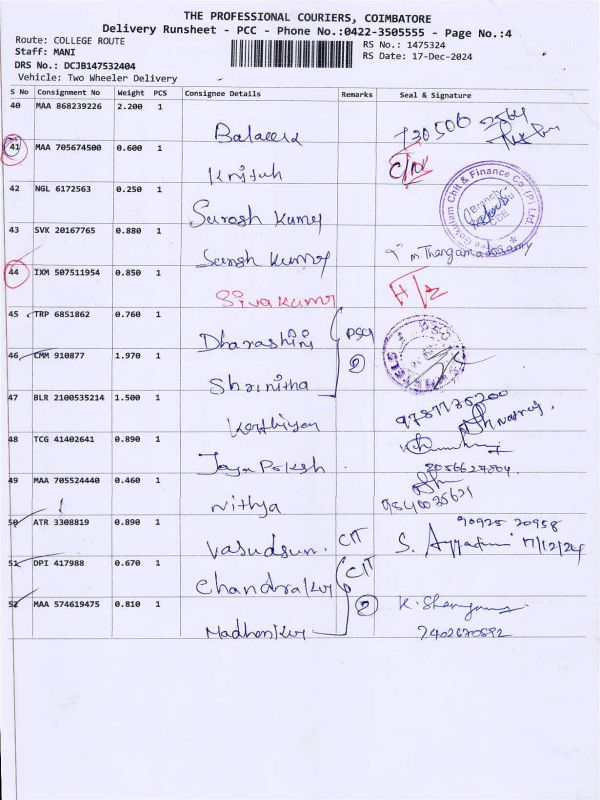 THE PROFESSIONAL COURIERS, COIMBATORE
Delivery Runsheet - PCC - Phone No.:0422-3505555 - Page No.:4
Route: COLLEGE ROUTE
RS No.: 1475324
Staff: MANI
RS Date: 17-Dec-2024
DRS No.: DCJB147532404
Vehicle: Two Wheeler Delivery
S No Consignment No Weight PCS Consignee Details Remarks Seal & Signature
40 MAA 868239226 2.200 1
41 MAA 705674500 0.600 1
C/N
42 NGL 6172563 0.250 1
Suresh Kumar
43 SVK 20167765 0.880 1
Suresh Kumar
m. Thangamadasamy
44 IXM 507511954 0.850 1
Sivakumar
H/2
45 TRP 6851862 0.760 1
Dharashini
PSG
2
46 CMM 910877 1.970 1
Shrinitha
47 BLR 2100535214 1.500 1
48 TCG 41402641 0.890 1
Jaya Pokesh
49 MAA 705524440 0.460 1
Nithya
9840035621
50 ATR 3308819 0.890 1
90925 20958
Vasudsun. CIT S. 17/12/24
51 DPI 417988 0.670 1
Chandra Kur CIT
52 MAA 574619475 0.810 1
2
Madhan Kur
7402670592